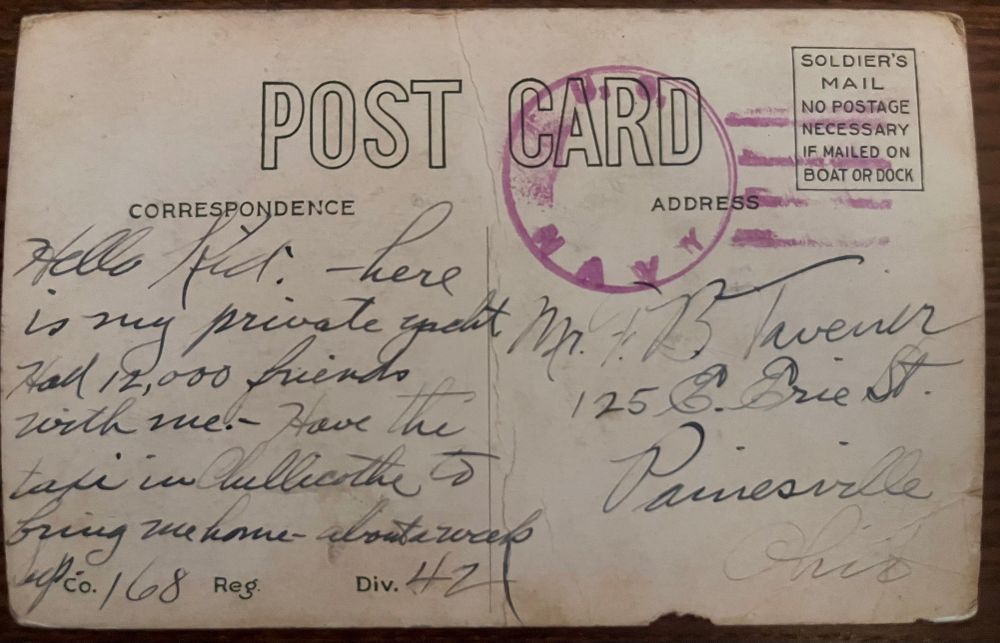 POST CARD
SOLDIER'S
MAIL
NO POSTAGE
NECESSARY
IF MAILED ON
BOAT OR DOCK
U.S.
NAVY
CORRESPONDENCE
ADDRESS
Hello Kid. - here
is my private yacht
Had 12,000 friends
with me. - Have the
taxi in Chillicothe to
bring me home - about a week
Co. 168 Reg. Div. 42
Mr. F. B. Tavener
125 E. Erie St.
Painesville
Ohio